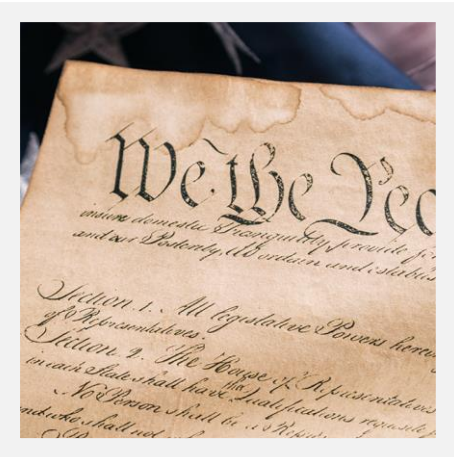 We the Peo
insure domestic Tranquility, provide for
and our Posterity, do ordain and establis
Section. 1. All legislative Powers herein
of Representatives.
Section. 2. The House of Representatives
in each State shall have the Qualifications requisite f
No Person shall be a Repres
and who shall not